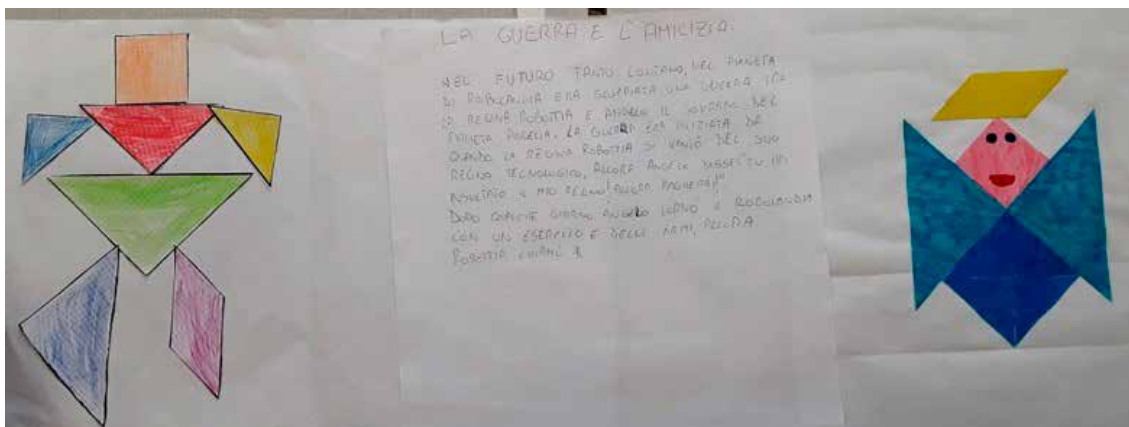 LA GUERRA E L'AMICIZIA.
NEL FUTURO TANTO LONTANO, NEL PIANETA
DI ROBOLANDIA ERA SCOPPIATA UNA GUERRA TRA
LA REGINA ROBOTTIA E ANGELO IL SOVRANO DEL
PIANETA LA GUERRA ERA INIZIATA DA
QUANDO LA REGINA ROBOTTIA SI VANTÒ DEL SUO
REGNO TECNOLOGICO, ALLORA ANGELO DISSE: "TU HAI
IL MIO REGNO! ALLORA PAGHERAI!"
DOPO QUALCHE GIORNO ANGELO TORNÒ A ROBOLANDIA
CON UN ESERCITO E DELLE ARMI, ALLORA
ROBOTTIA CHIAMÒ